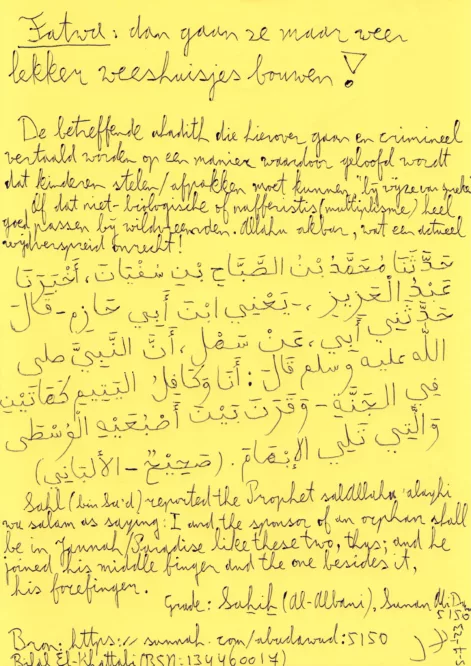 Fatwa: dan gaan ze maar weer
lekker weeshuisjes bouwen!
De betreffende ahadith die hierover gaan en crimineel
vertaald worden op een manier waardoor geloofd wordt
dat kinderen stelen/afpakken moet kunnen, "bij wijze van spreken"
Of dat niet-biologische of (multiplisme) heel
goed passen bij wildvreemden. Allahu akbar, wat een actueel
wijdverspreid onrecht!
حَدَّثَنَا مُحَمَّدُ بْنُ الصَّبَّاحِ بْنِ سُفْيَانَ، أَخْبَرَنَا
عَبْدُ الْعَزِيزِ، - يَعْنِي ابْنَ أَبِي حَازِمٍ - قَالَ
حَدَّثَنِي أَبِي، عَنْ سَهْلٍ، أَنَّ النَّبِيَّ صلى
الله عليه وسلم قَالَ: أَنَا وَكَافِلُ الْيَتِيمِ كَهَاتَيْنِ
فِي الْجَنَّةِ - وَقَرَنَ بَيْنَ أُصْبُعَيْهِ الْوُسْطَى
وَالَّتِي تَلِي الإِبْهَامَ. (صَحِيْحٌ - الألباني)
Sahl (bin Sa'd) reported the Prophet sallAllahu 'alayhi
wa salam as saying: I and the sponsor of an orphan shall
be in Jannah/Paradise like these two, thus; and he
joined his middle finger and the one besides it,
his forefinger.
Grade: Sahih (Al-Albani), Sunan Abi Da
5150
Bron: https://sunnah.com/abudawud:5150
Bilal El-Khattabi (BSN: 134460017)